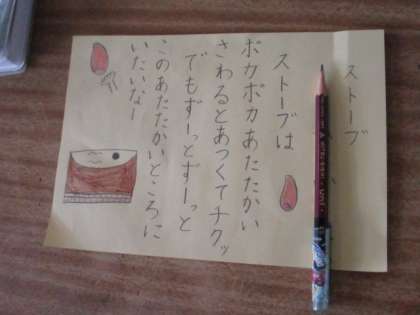 ストーブ
ストーブは
ポカポカあたたかい
さわるとあつくてチクッ
でもずーっとずーっと
このあたたかいところに
いたいなー